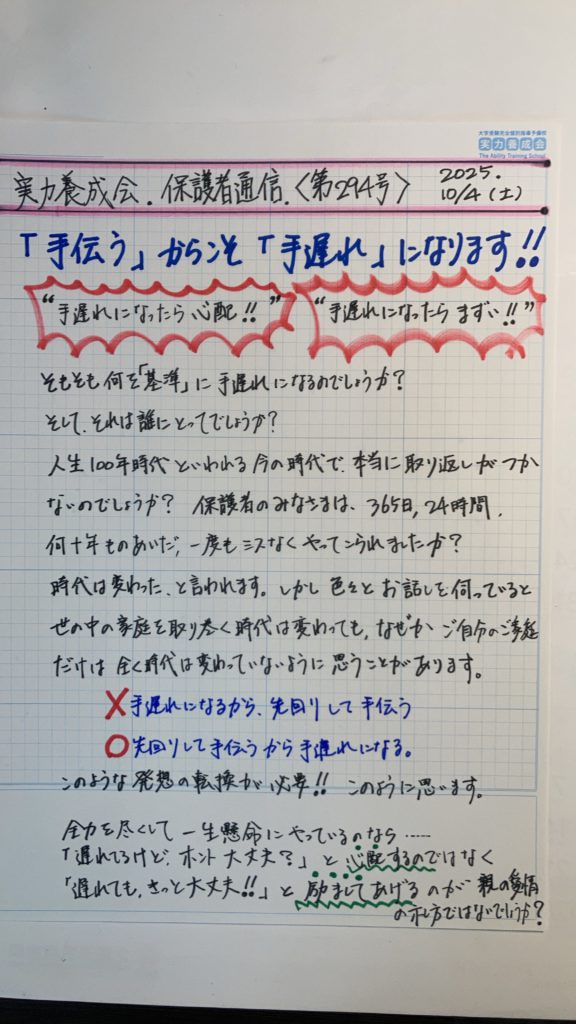 大学受験完全個別指導予備校
実力養成会
The Ability Training School
実力養成会.保護者通信.〈第294号〉
2025.
10/4(土)
「手伝う」からこそ「手遅れ」になります!!
“手遅れになったら心配!!”
“手遅れになったらまずい!!”
そもそも何を「基準」に手遅れになるのでしょうか?
そして、それは誰にとってでしょうか?
人生100年時代といわれる今の時代で、本当に取り返しがつか
ないのでしょうか? 保護者のみなさまは、365日,24時間,
何十年ものあいだ,一度もミスなくやってこられましたか?
時代は変わった、と言われます。しかし色々とお話しを伺っていると
世の中の家庭を取り巻く時代は変わっても,なぜかご自分のご家庭
だけは全く時代は変わっていないように思うことがあります。
✗手遅れになるから、先回りして手伝う
○先回りして手伝うから手遅れになる。
このような発想の転換が必要!! このように思います。
全力を尽くして一生懸命にやっているのなら……
「遅れてるけど、ホント大丈夫?」と心配するのではなく
「遅れても、きっと大丈夫!!」と励ましてあげるのが親の愛情
の示し方ではないでしょうか?